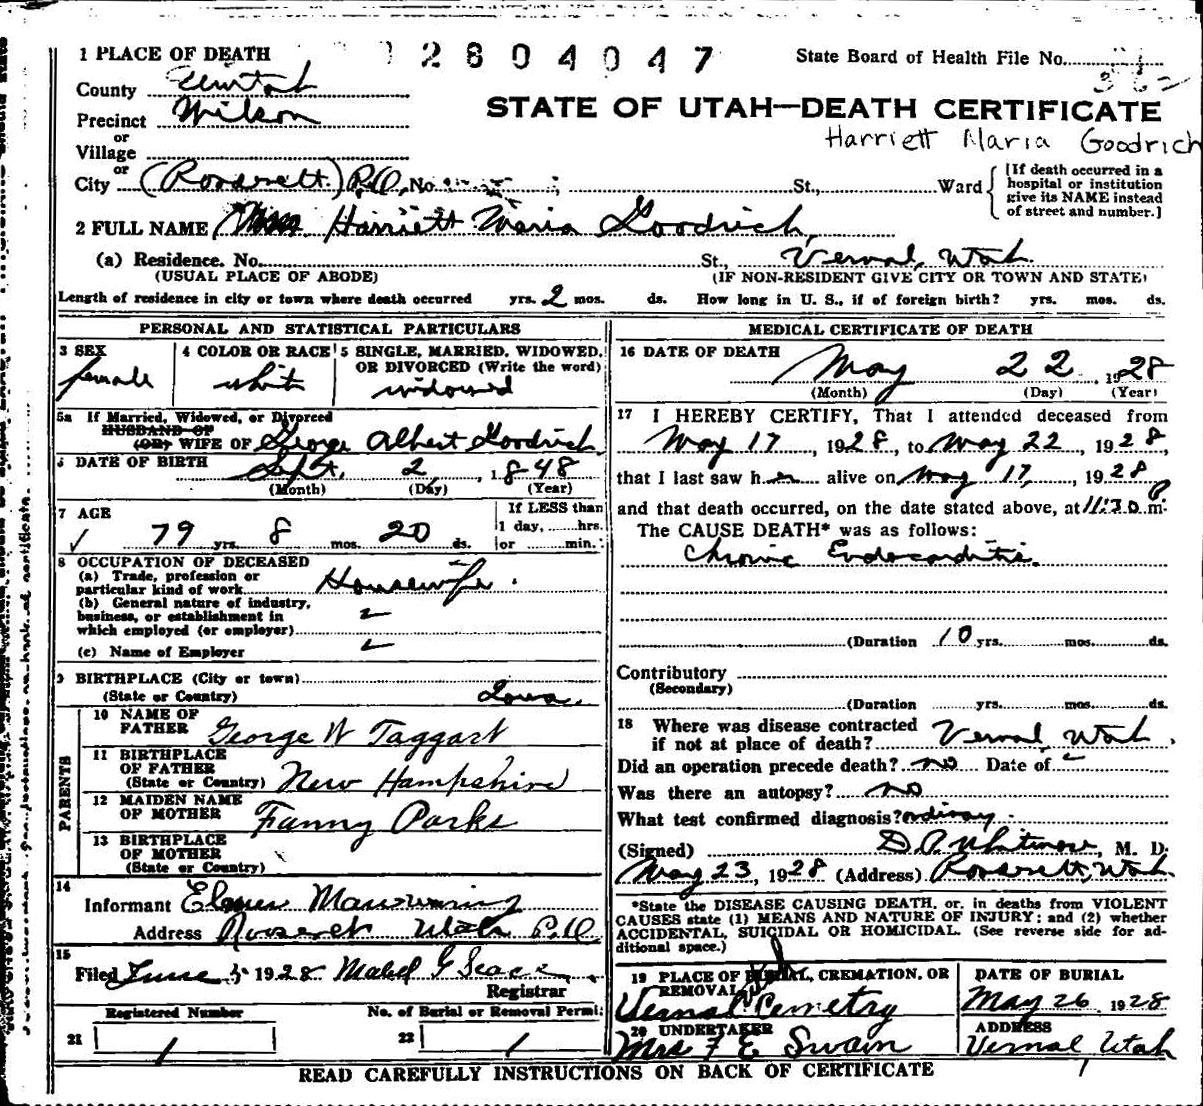 1 PLACE OF DEATH 2804047 State Board of Health File No.
County Uintah 362
Precinct Wilson STATE OF UTAH—DEATH CERTIFICATE
or Harriett Maria Goodrich
Village
or
City (Roosevelt) P.O. No. St., Ward {[If death occurred in a hospital or institution give its NAME instead of street and number.]
2 FULL NAME (Mrs Harriett Maria Goodrich,
(a) Residence. No. St., Vernal, Utah
(USUAL PLACE OF ABODE) (IF NON-RESIDENT GIVE CITY OR TOWN AND STATE)
Length of residence in city or town where death occurred yrs. 2 mos. ds. How long in U. S., if of foreign birth? yrs. mos. ds.
PERSONAL AND STATISTICAL PARTICULARS
3 SEX 4 COLOR OR RACE 5 SINGLE, MARRIED, WIDOWED,
OR DIVORCED (Write the word)
female white widowed
5a If Married, Widowed, or Divorced
HUSBAND OF
(OR) WIFE OF George Albert Goodrich
6 DATE OF BIRTH Sept. 2 1848
(Month) (Day) (Year)
7 AGE If LESS than
1 day, hrs.
79 yrs. 8 mos. 20 ds. or min.
8 OCCUPATION OF DECEASED
(a) Trade, profession or
particular kind of work Housewife.
(b) General nature of industry,
business, or establishment in
which employed (or employer)
(c) Name of Employer
9 BIRTHPLACE (City or town)
(State or Country) Iowa.
PARENTS
10 NAME OF
FATHER George W Taggart
11 BIRTHPLACE
OF FATHER
(State or Country) New Hampshire
12 MAIDEN NAME
OF MOTHER Fanny Parks
13 BIRTHPLACE
OF MOTHER
(State or Country)
14
Informant Elmer Manwaring
Address Roosevelt Utah P.O.
15
Filed June 5 1928 Mabel G
Registrar
Registered Number No. of Burial or Removal Permit
21 1 22 1
MEDICAL CERTIFICATE OF DEATH
16 DATE OF DEATH
May 22, 1928
(Month) (Day) (Year)
17 I HEREBY CERTIFY, That I attended deceased from
May 17, 1928, to May 22, 1928,
that I last saw her alive on May 17, 1928
and that death occurred, on the date stated above, at 11:30 P m.
The CAUSE DEATH* was as follows:
Chronic Endocarditis.
(Duration 10 yrs. mos. ds.
Contributory
(Secondary)
(Duration yrs. mos. ds.
18 Where was disease contracted
if not at place of death? Vernal, Utah.
Did an operation precede death? no Date of
Was there an autopsy? no
What test confirmed diagnosis? ordinary
(Signed) D. P. Whitmore, M. D.
May 23, 1928 (Address) Roosevelt, Utah.
*State the DISEASE CAUSING DEATH, or, in deaths from VIOLENT
CAUSES state (1) MEANS AND NATURE OF INJURY; and (2) whether
ACCIDENTAL, SUICIDAL OR HOMICIDAL. (See reverse side for ad-
ditional space.)
19 PLACE OF BURIAL, CREMATION, OR
REMOVAL
Vernal Cemetry
DATE OF BURIAL
May 26 1928
20 UNDERTAKER
Mrs F E Swain
ADDRESS
Vernal Utah
READ CAREFULLY INSTRUCTIONS ON BACK OF CERTIFICATE